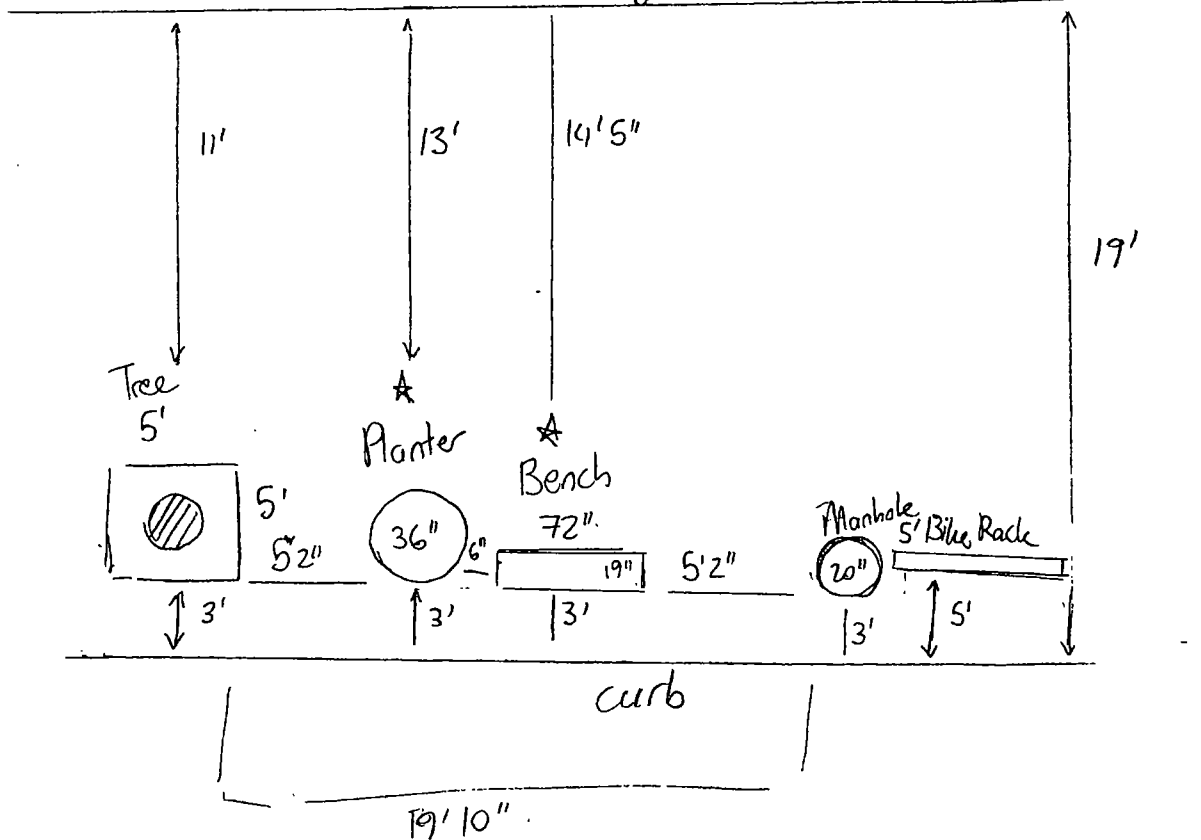 11'
13'
14' 5"
19'
Tree
5'
5'
Planter
36"
Bench
72"
19"
6"
5'2"
5'2"
Manhole
20"
5' Bike Rack
3'
3'
3'
3'
5'
curb
19' 10"